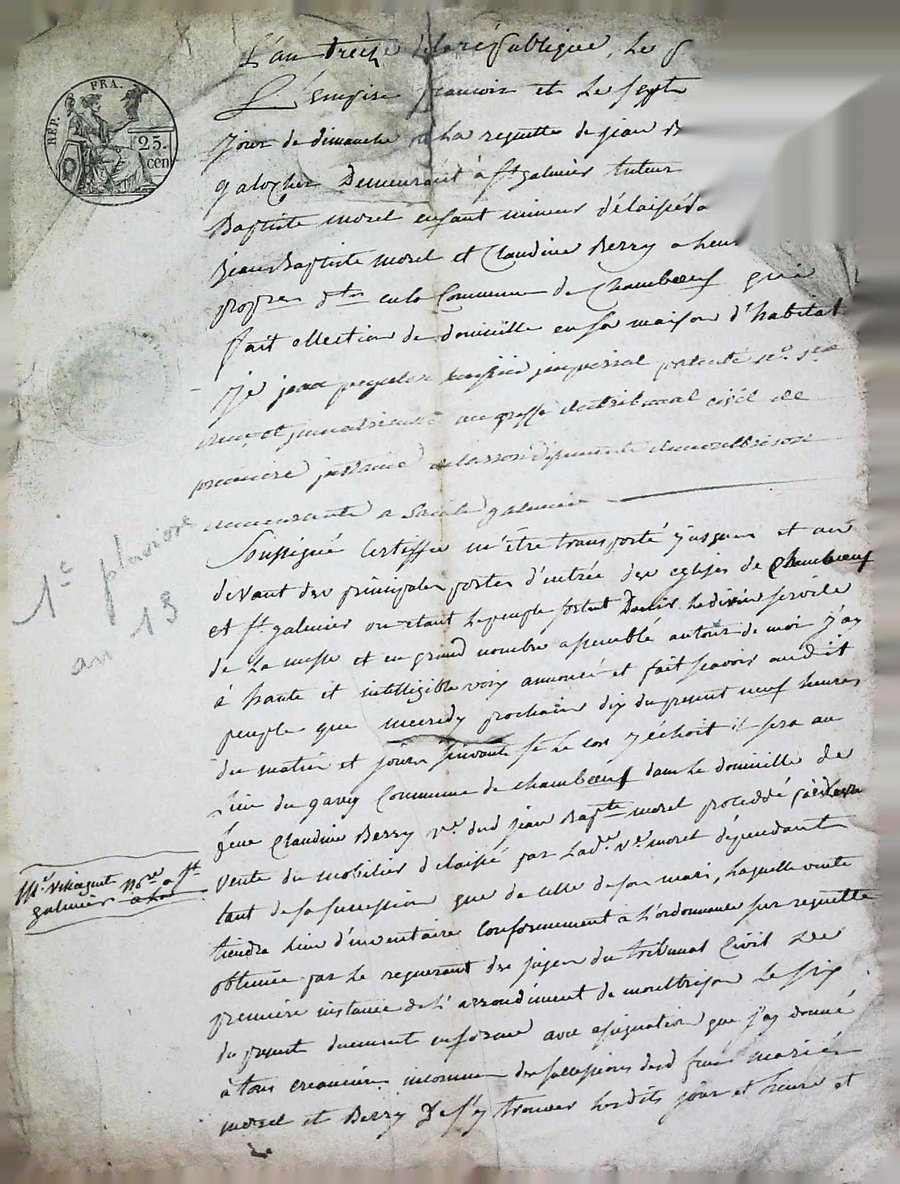 L'an treize de la république, le
L'empire francois et le sept
jour de dimanche a la requette de jean
galocher Demeurant a st galmier tuteur
Baptiste morel enfant mineur délaissé
Jean Baptiste morel et Claudine Berry a leur
propres en la Commune de Chambœuf qui
fait ellection de domicille en sa maison d'habitat
REP. FRA.
25.
cen
Je jean huissier imperial patenté no.
au greffe du tribunal civil de
premiere instance de montbrison
demeurante a Sainte galmier
1er pluviose
an 13
Soussigné Certiffie m'être transporté jusques et au
devant des principales portes d'entrée des eglises de Chambœuf
et st. galmier ou etant le peuple sortant Douir le divin servile
de la messe et en grand nombre assemblé autour de moi j'ay
à haute et intelligible voix annoncé et fait scavoir audit
peuple que mecredy prochain dix du present neuf heures
du matin et jours suivants se le cas y échoit il sera au
lieu du garey Commune de chambœuf dans le domicille de
feue Claudine Berry ve. dud jean Bapte morel proceddé
vente du mobilier délaissé par lade. ve. morel dépendant
Me. notre a st.
galmier
tant de sa succession que de celle de son mari, laquelle vente
tiendra lieu d'inventaire Conformement a l'ordonnance sur requette
obtenue par le requerant des juges du tribunal Civil de
premiere instance de l'arrondiment de montbrison le six
du present duement en forme avec assignation que j'ay donné
à tous creanciers inconnus des successions dud feus mariés
morel et Berry De s'y trouver lesdits jour et heure et